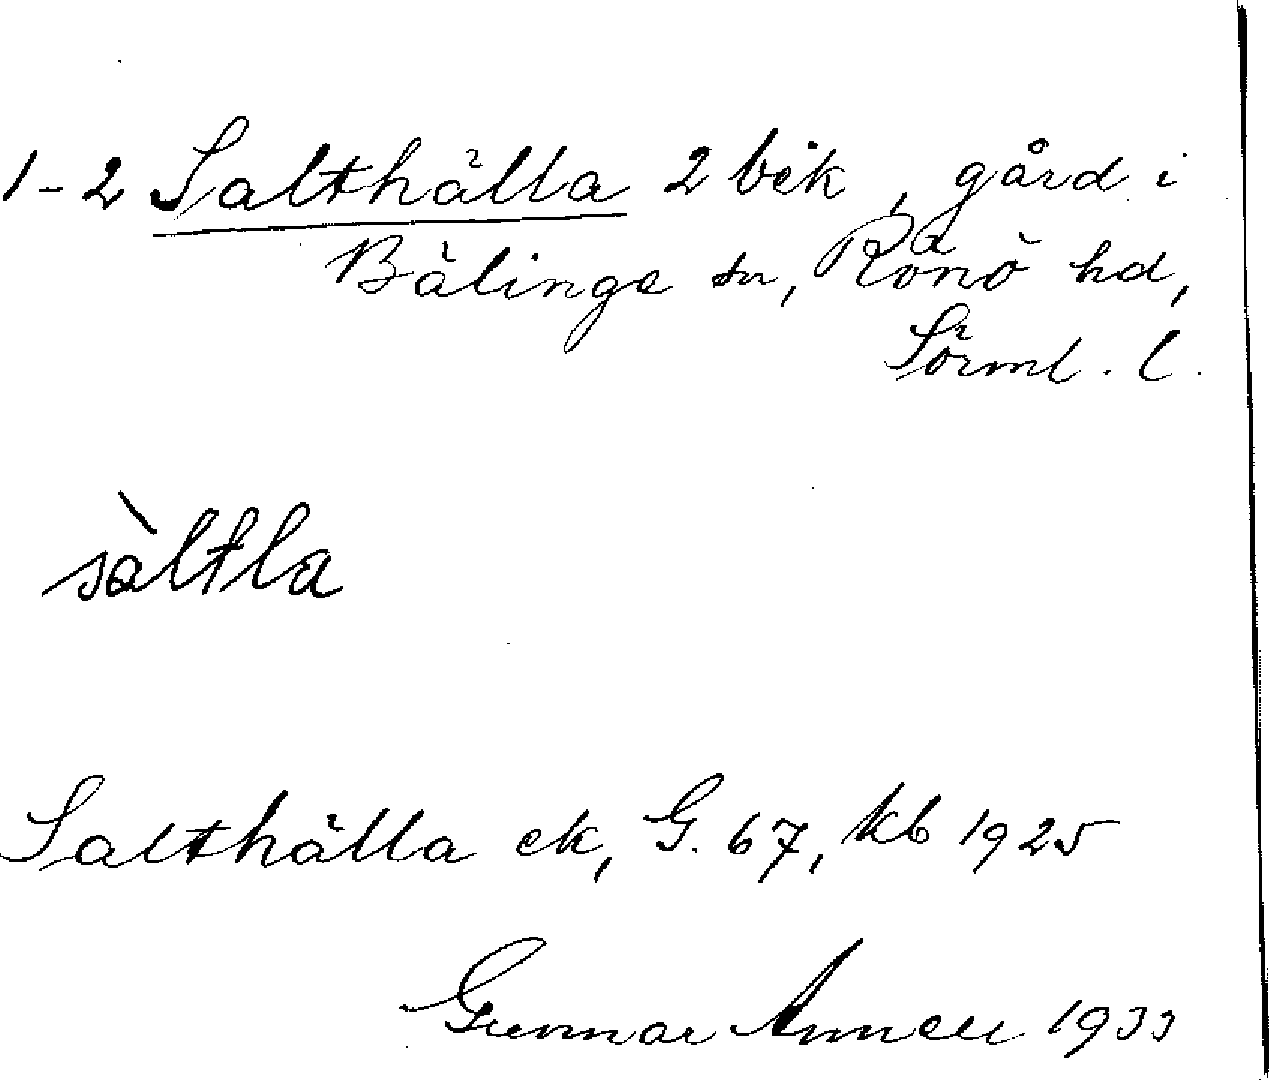 1-2 Salthälla 2 bek, gård i
Bälinge sn, Rönö hd,
Sörml. l.
sàltla
Salthälla ek, G. 67, kb 1925
Gunnar 1933